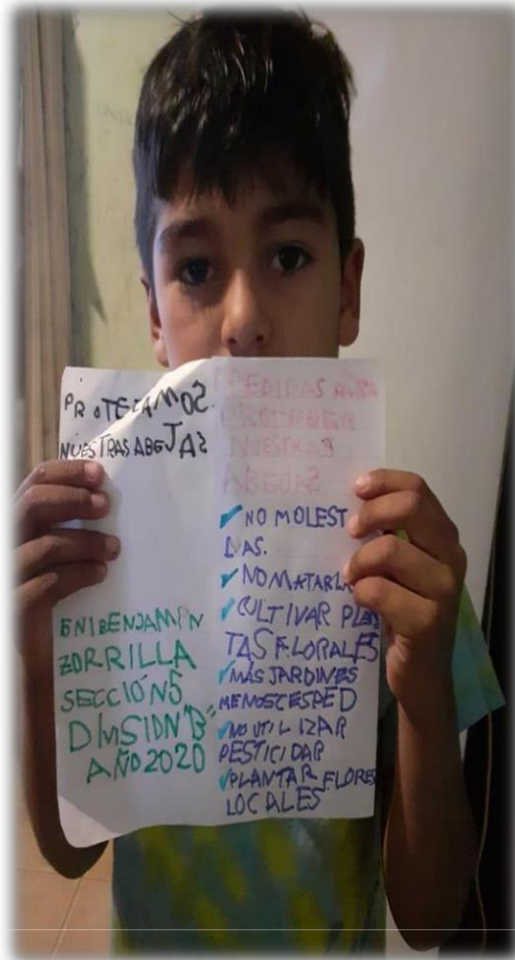 PROTEGAMOS
NUESTRAS ABEJAS
ENI BENJAMIN
ZORRILLA
SECCIÓN 5
DIVISION "B"
AÑO 2020
MEDIDAS PARA
PROTEGER
NUESTRAS
ABEJAS
✓ NO MOLEST
LAS.
✓ NO MATARLA
✓ CULTIVAR PLAN
TAS FLORALES
✓ MÁS JARDINES
MENOS CESPED
✓ NO UTILIZAR
PESTICIDAR
✓ PLANTAR FLORES
LOCALES